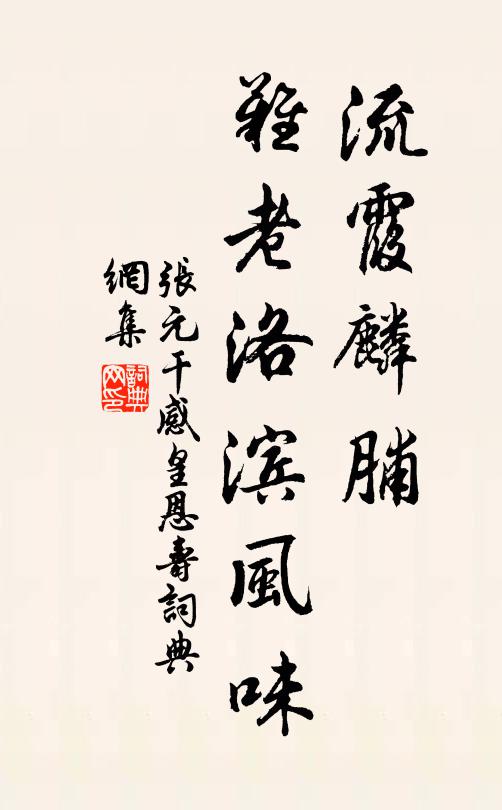 流霞麟脯
難老洛滨風味
張元干感皇恩壽詞典
網集
詞典
网印